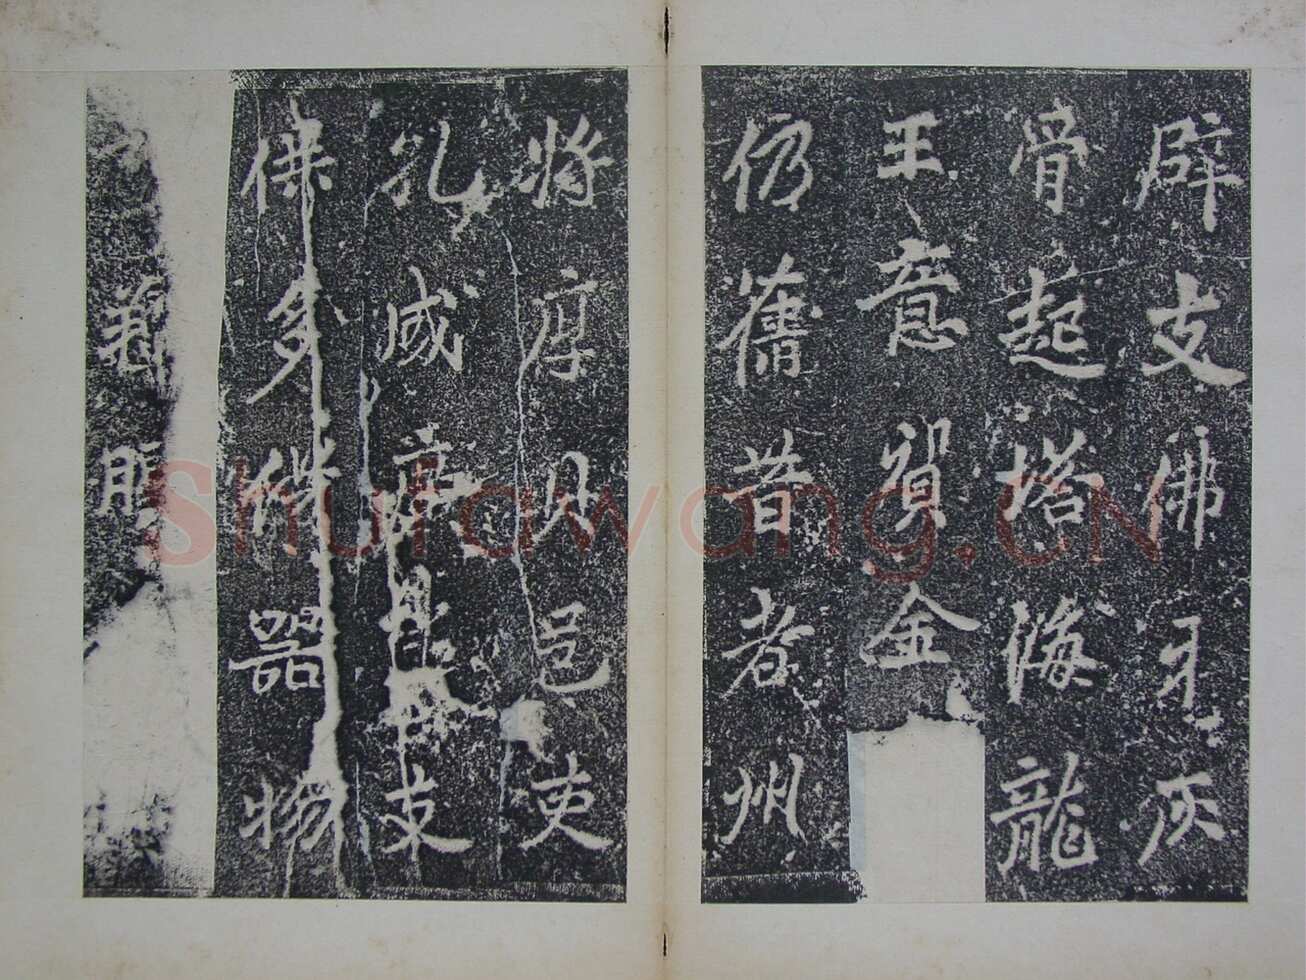 辟支佛牙灰
骨起塔海龍
王意賀金
仍舊昔者州
將厚見邑吏
孔威 支
供多借器物
Shufawang.CN